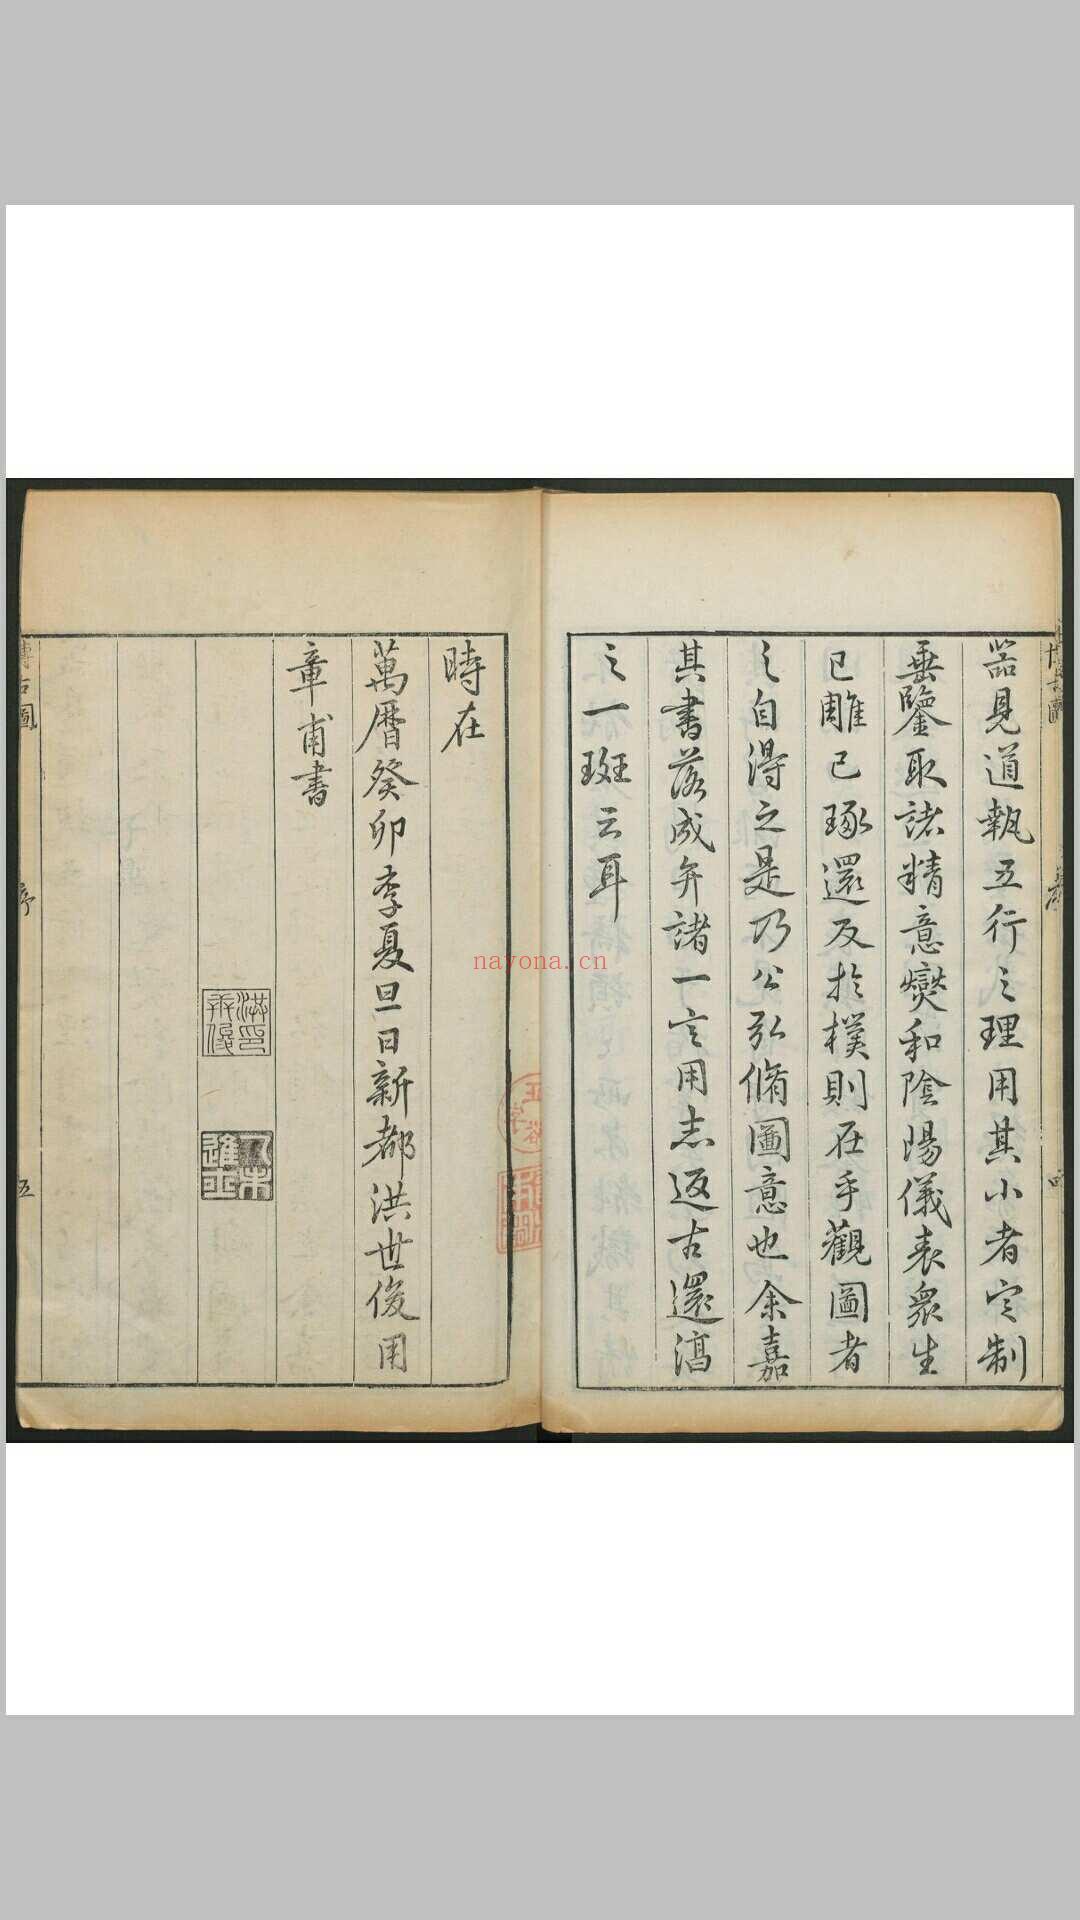 器見道執五行之理用其小者定制
垂鑒取諸精意爕和陰陽儀表眾生
已雕已琢還反於樸則在乎觀圖者
之自得之是乃公弘脩圖意也余嘉
其書落成弁諸一言用志返古還淳
之一斑云耳
時在
萬曆癸卯季夏旦日新都洪世俊用
章甫書
博古圖
序
五
nayona.cn